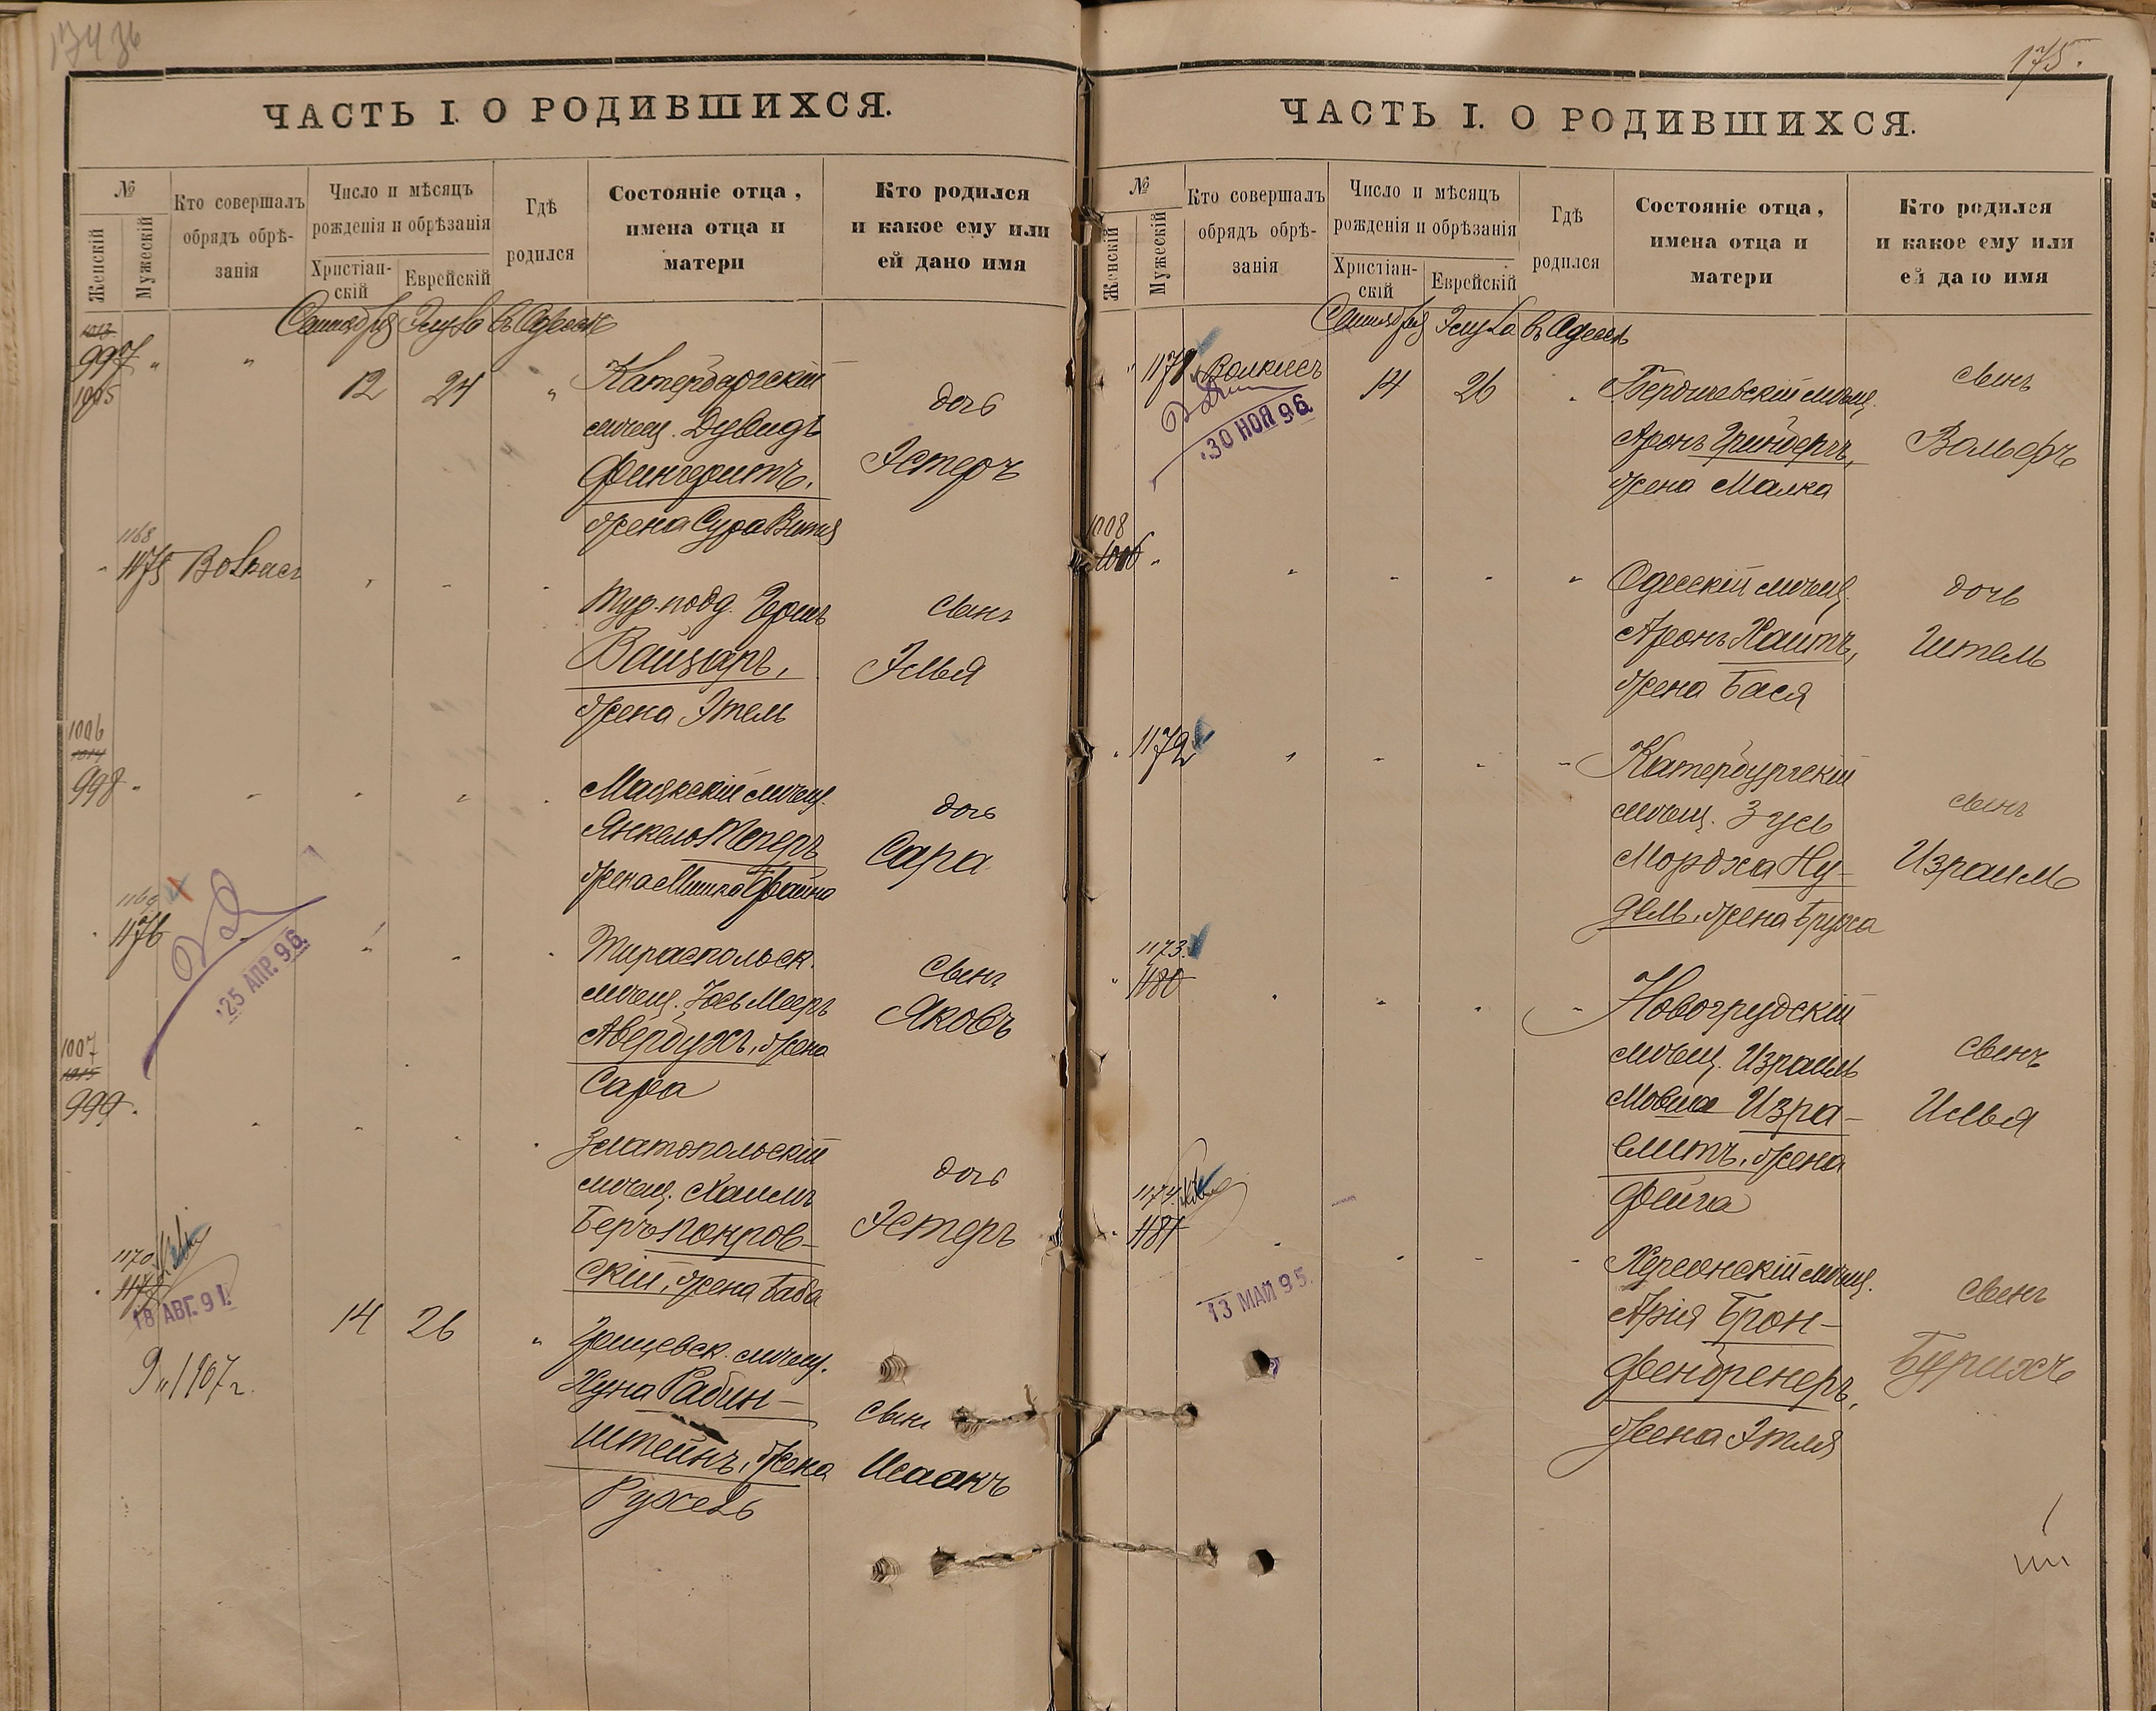 175.
ЧАСТЬ I. О РОДИВШИХСЯ.
№
Женскій
Мужескій
Кто совершалъ
обрядъ обрѣ-
занія
Число и мѣсяцъ
рожденія и обрѣзанія
Христіан-
скій
Еврейскій
Гдѣ
родился
Состояніе отца,
имена отца и
матери
Кто родился
и какое ему или
ей дано имя
Сентября Элула въ Одессѣ
997
1005
12
24
Катербургскій
мѣщ. Дувидъ
Фингеритъ,
жена Сура Витя
дочь
Эстеръ
1168
1175
Волкисъ
Тур. подд. Герш
Вайзеръ,
жена Этель
сынъ
Элья
1006
1014
998
Маякскій мѣщ.
Янкель Теперъ
жена Фейга
дочь
Сара
1169
1176
25 АПР. 96.
Тираспольск.
мѣщ. Іось Мееръ
Авербухъ, жена
Сара
сынъ
Яковъ
1007
1015
999
Златопольскій
мѣщ. Хаимъ
Беръ Покров-
скій, жена Баба
дочь
Эстеръ
1170
18 АВГ. 91.
9 1907 г.
14
26
мѣщ.
Хуна Рабин-
штейнъ, жена
Рухель
сынъ
Исаакъ
ЧАСТЬ I. О РОДИВШИХСЯ.
№
Женскій
Мужескій
Кто совершалъ
обрядъ обрѣ-
занія
Число и мѣсяцъ
рожденія и обрѣзанія
Христіан-
скій
Еврейскій
Гдѣ
родился
Состояніе отца,
имена отца и
матери
Кто родился
и какое ему или
ей дано имя
Сентября Элула въ Одессѣ
1171
Волкисъ
30 НОЯ 96.
14
26
Бердичевскій мѣщ.
Аронъ Гринбергъ,
жена Малка
сынъ
Вольфъ
1008
Одесскій мѣщ.
Аронъ Хаитъ,
жена Бася
дочь
Итель
1172
Катербургскій
мѣщ. Зусь
Мордха Ну-
дель, жена Бруха
сынъ
Израиль
1173.
1180
Новогрудскій
мѣщ. Израиль
Мовша Изра-
елитъ, жена
Фейга
сынъ
Илья
1174.
1181
13 МАЙ 95.
Херсонскій мѣщ.
Арія Брон-
фенбренеръ,
жена Этля
сынъ
Бурихъ